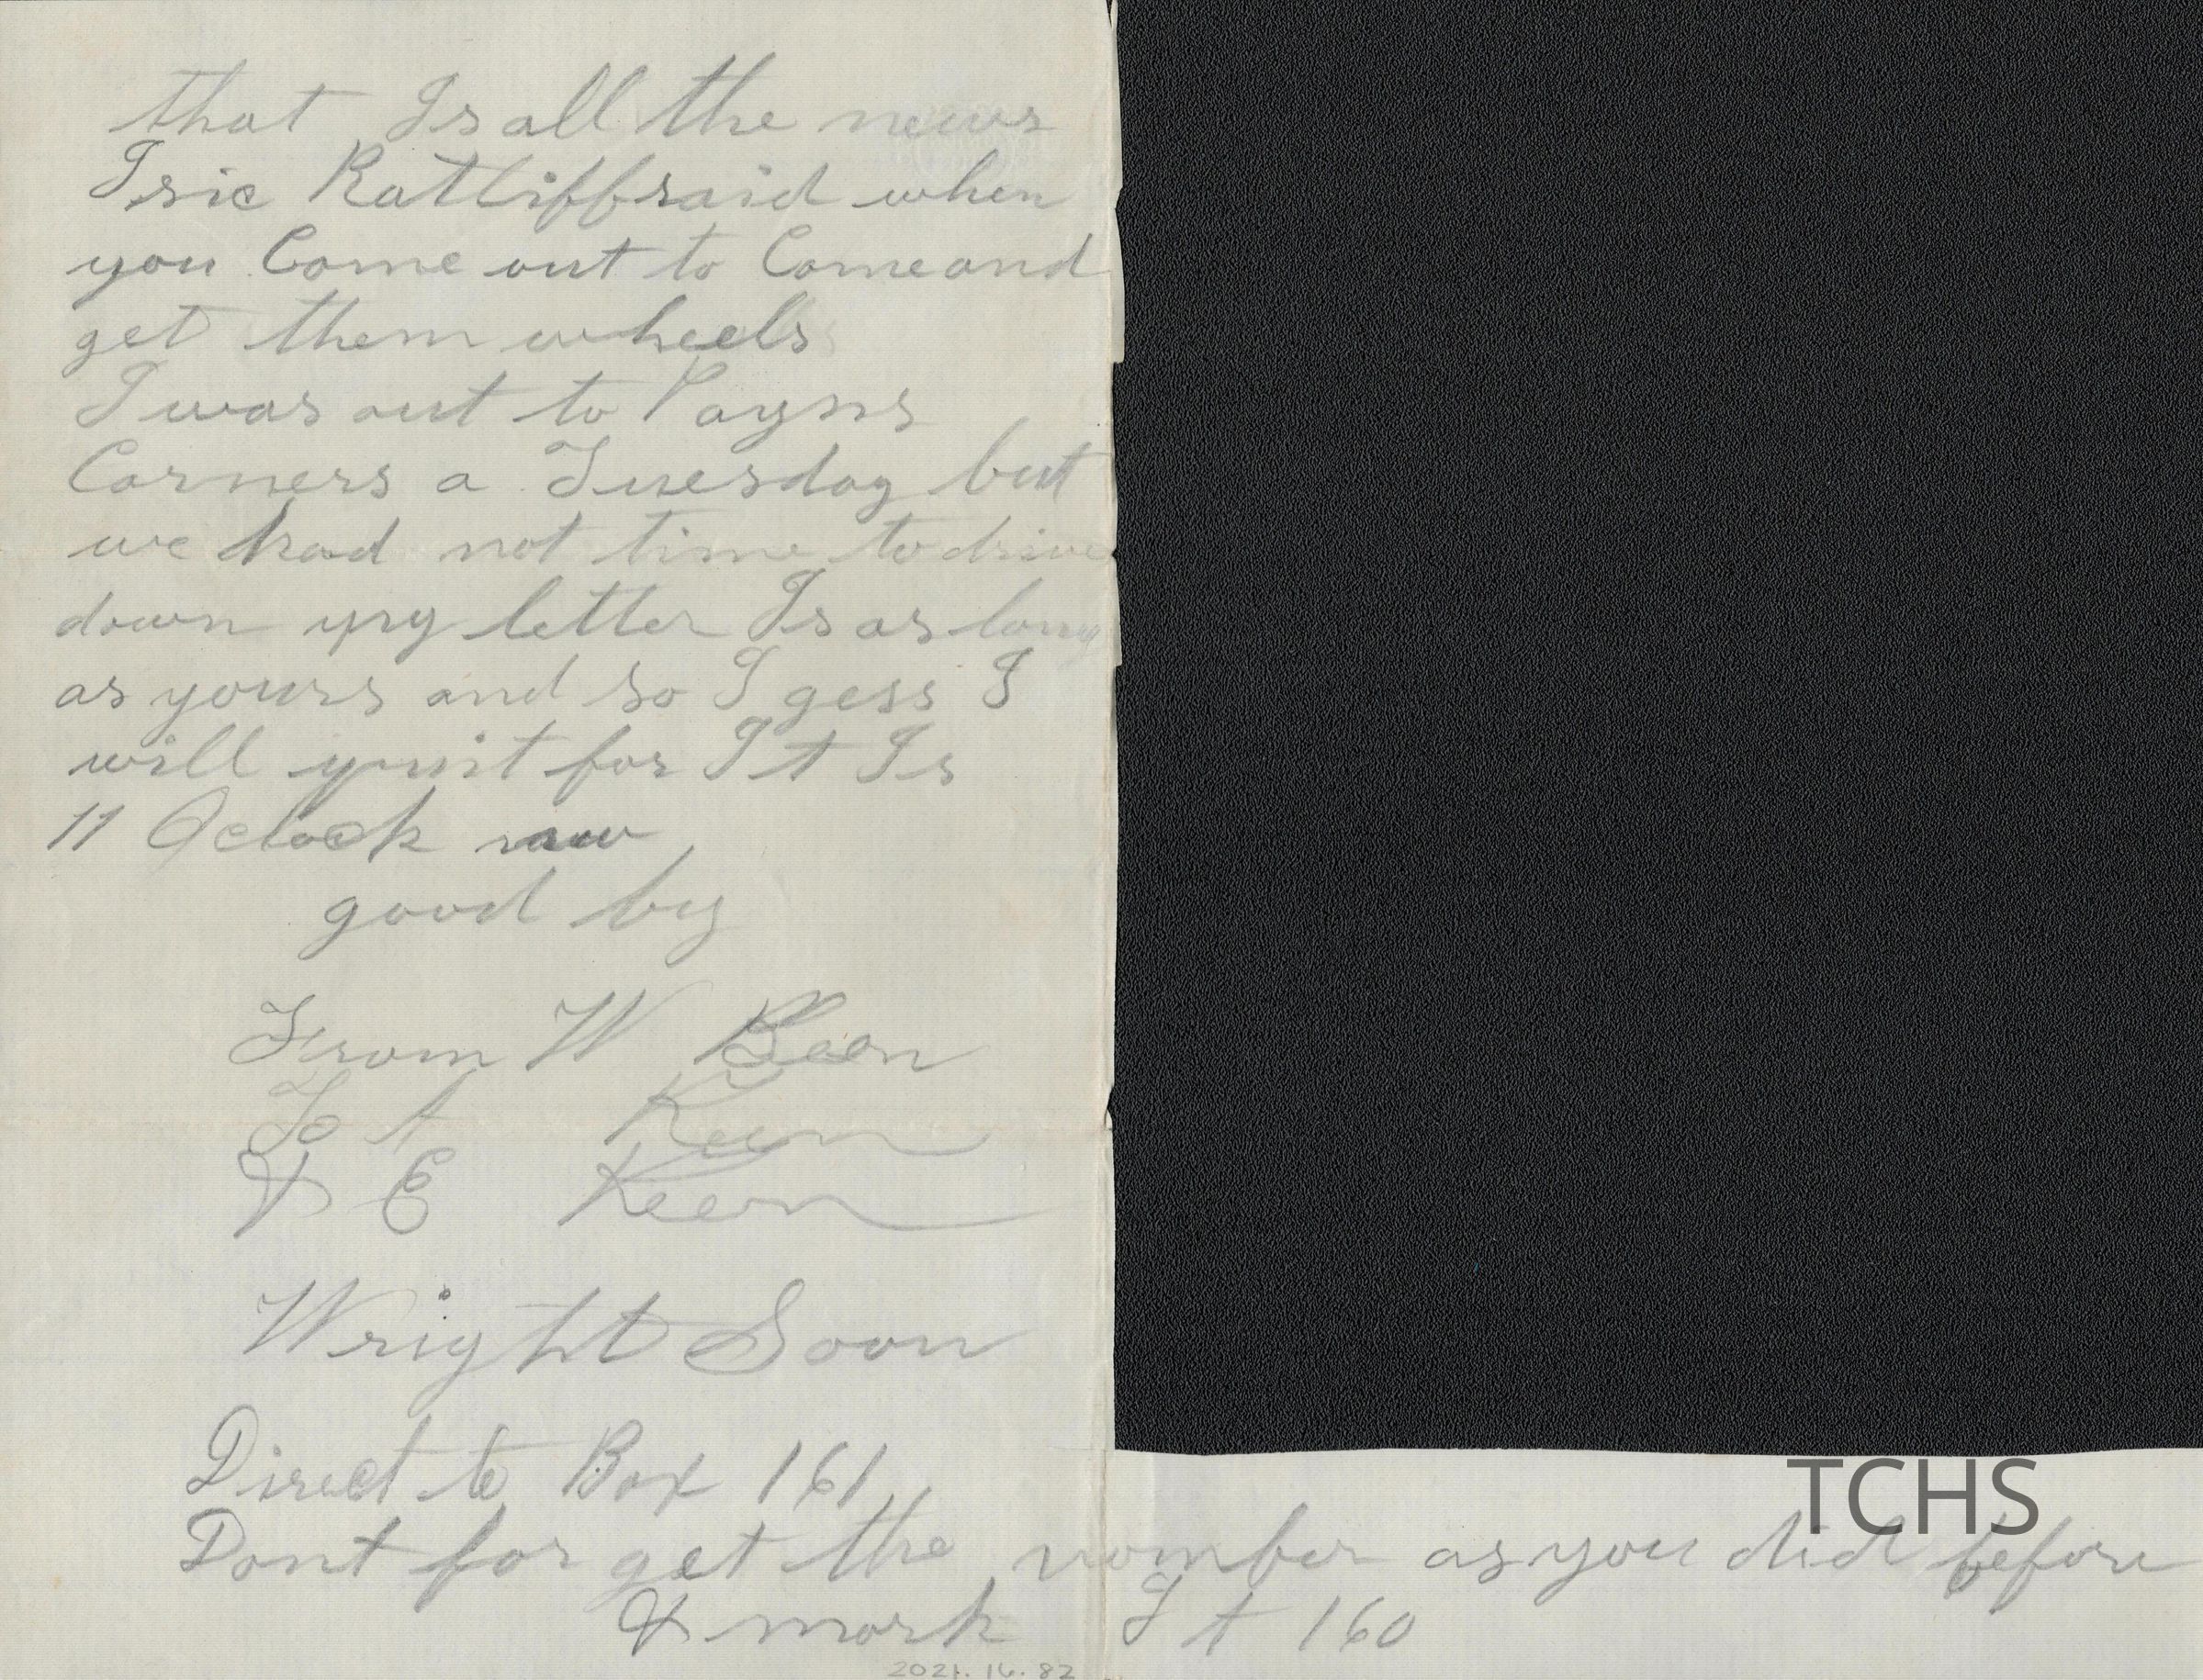 that Is all the news
Isic Ratliff said when
you Come out to Come and
get them wheels
I was out to Payns
Corners a Tuesday but
we had not time to drive
down my letter Is as long
as yours and so I gess I
will quit for It Is
11 Oclock now
good by
From W Keen
To A Keen
& E Keen
Wright Soon
Direct to Box 161
Dont for get the nomber as you did before
& mark It 160
2021.16.82
TCHS